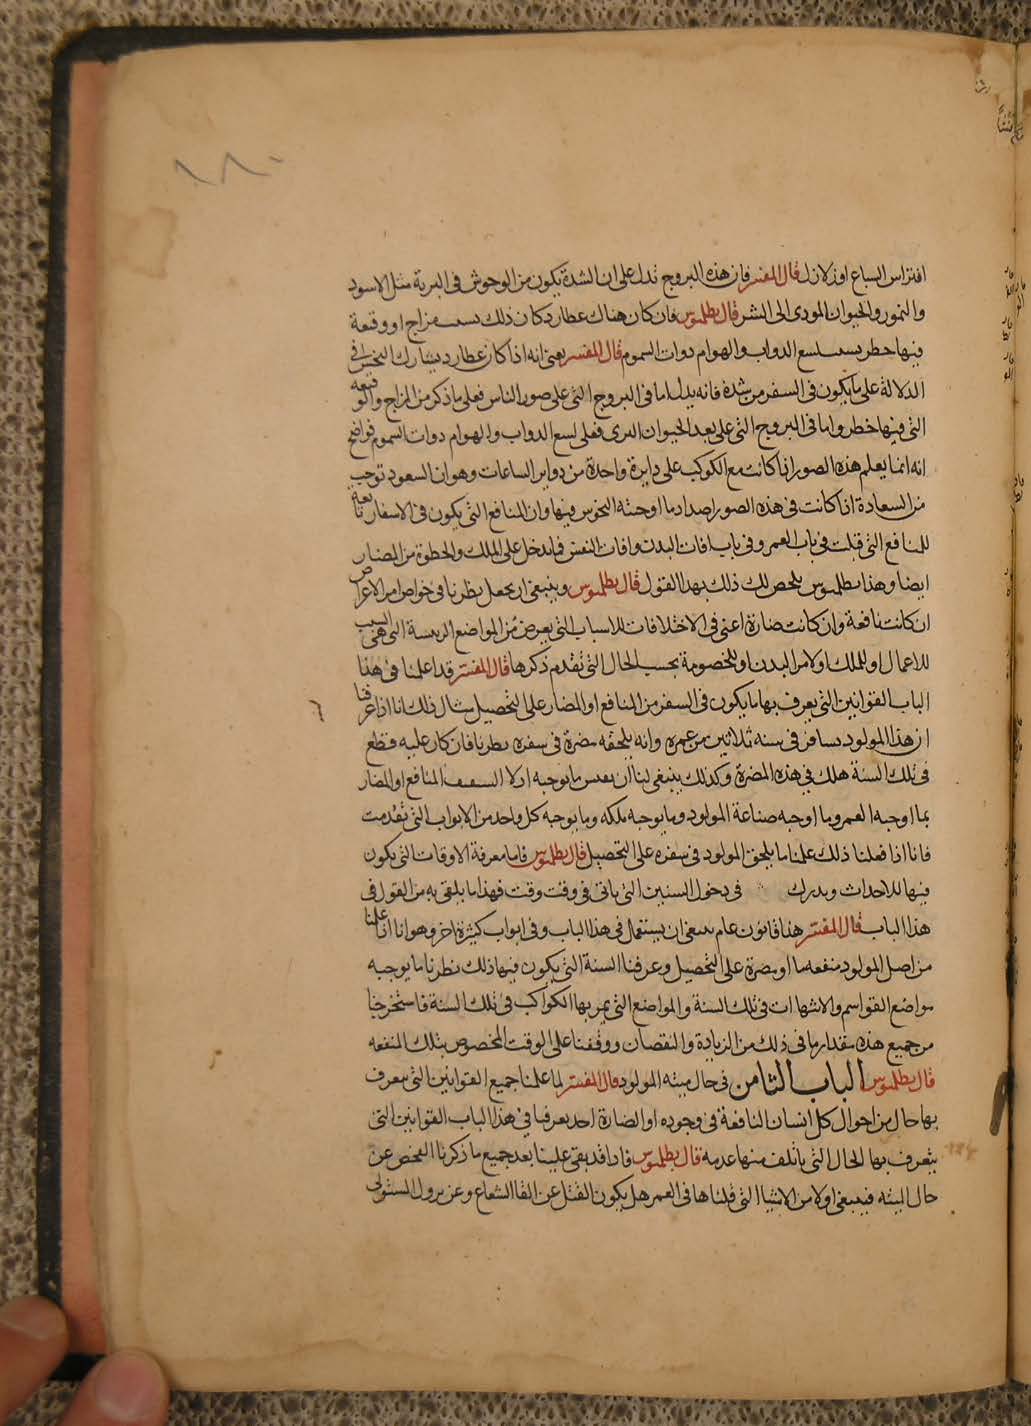 ١٨٠
افتراس السباع او زلازل قال المفسر فان هذه البروج تدل على ان الشدة يكون من الوحوش فى البرية مثل الاسود
والنمور والحيوان الموذى الى البشر قال بطلميوس فان كان هناك عطارد كان ذلك بسبب مزاج او وقيعة
فيها خطر بسبب لسع الدواب والهوام ذوات السموم قال المفسر يعنى انه اذا كان عطارد يشارك النحس فى
الدلالة على ما يكون فى السفر من شدة فانه يدل اما فى البروج التى على صور الناس فعلى ما ذكر من المزاج والوقيعة
التى فيها خطر واما فى البروج التى على بعد الحيوان البرى فعلى لسع الدواب والهوام ذوات السموم فواضح
انه انما يعلم هذه الصور اذا كانت مع الكوكب على دايرة واحدة من دواير الساعات وهو ان السعود توجب
من السعادة اذا كانت فى هذه الصور اضداد ما اوجبته النحوس فيها وان المنافع التى يكون فى الاسفار تابعة
للمنافع التى قبلت فى باب العمر وفى باب افات البدن وافات النفس فما يدخل على الملك والحظوة من المضار
ايضا وهذا بطلميوس يلخص لك ذلك بهذا القول قال بطلميوس وينبغى ان يجعل نظرنا فى خواص امر الاعراض
ان كانت نافعة وان كانت ضارة اعنى فى الاختلافات للاسباب التى يعرض من المواضع الريسة التى هى السبب
للاعمال او للملك او لامر البدن او للخصومة بحسب الحال التى تقدم ذكرها قال المفسر قد اعلمنا فى هذا
الباب القوانين التى يعرف بها ما يكون فى السفر من المنافع او المضار على التحصيل مثال ذلك انا اذا عرفنا
ان هذا المولود يسافر فى سنه ثلاثين من عمره وانه يلحقه مضرة فى سفره نظرنا فان كان عليه قطع
فى تلك السنة هلك فى هذه المضرة وكذلك ينبغى لنا ان نقيس ما يوجبه المنافع او المضار
بما اوجبه العمر وما اوجبه صناعة المولود وما يوجبه ملكه وما يوجبه كل واحد من الابواب التى تقدمت
فانا اذا فعلنا ذلك علمنا ما يلحق المولود فى سفره على التحصيل قال بطلميوس فاما معرفة الاوقات التى يكون
فيها للاحداث ويدرك فى دخول السنين التى ياتى فى وقت وقت فهذا ما يلقى به من القول فى
هذا الباب قال المفسر هذا قانون عام ينبغى ان يستعمل فى هذا الباب وفى ابواب كثيرة اخر وهو انا اذا علمنا
من اصل المولود منفعه ما او مضرة على التحصيل وعرفنا السنة التى يكون فيها ذلك نظرنا ما يوجبه
مواضع القواسم والانتهاات فى تلك السنة والمواضع التى يمر بها الكواكب فى تلك السنة فاستخرجنا
من جميع هذه مقدار ما فى ذلك من الزيادة والنقصان ووقفنا على الوقت المخصوص بتلك المنفعه
قال بطلميوس الباب الثامن فى حال ميته المولود قال المفسر لما علمنا جميع القوانين التى تعرف
بها حال من احوال كل انسان النافعة فى وجوده او الضارة اخذ يعرفنا فى هذا الباب القوانين التى
يتعرف بها الحال التى ياتلف منها عدمه قال بطلميوس فاذ قد بقى علينا بعد جميع ما ذكرنا الفحص عن
حال الميته فينبغى اولا من الاشيا التى قلناها فى العمر هل يكون القتل عن القا الشعاع وعن نزول المستولى